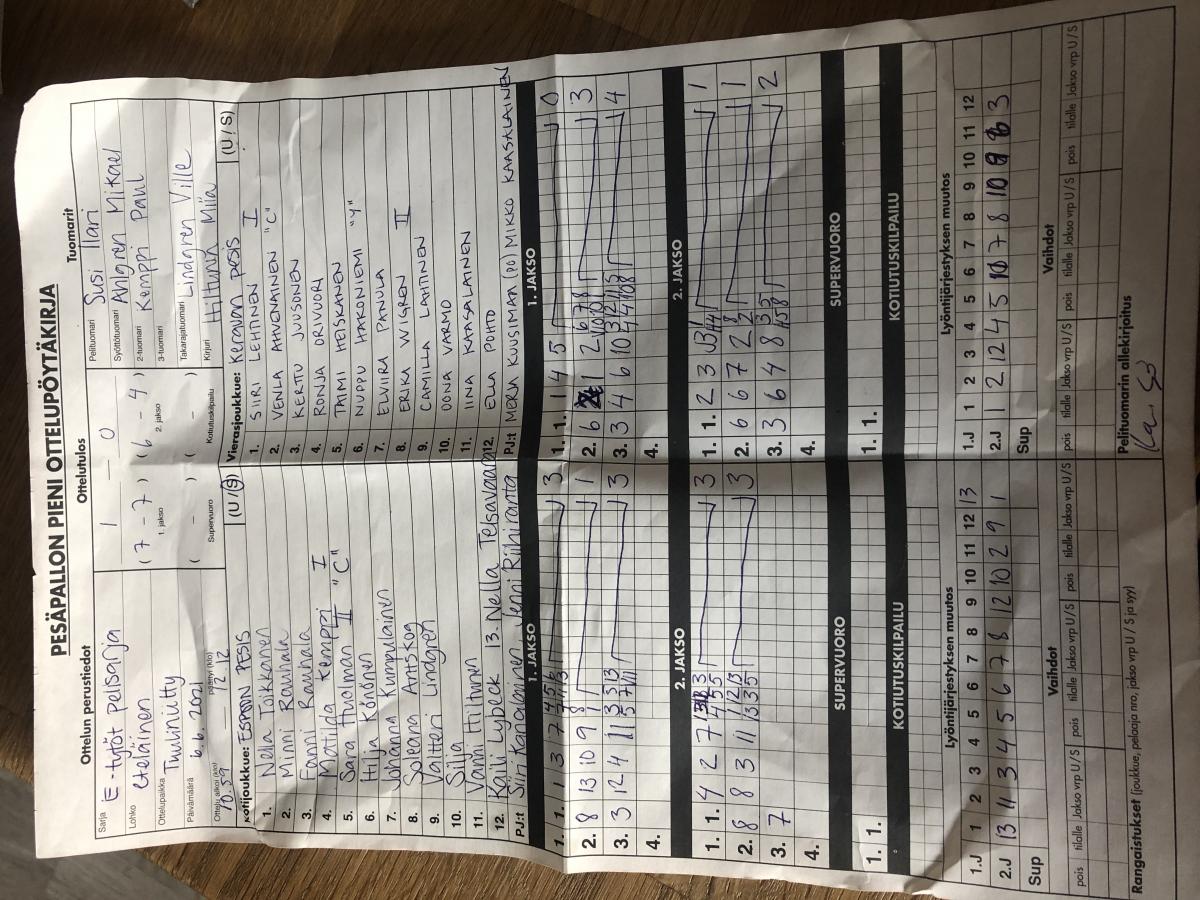 PESÄPALLON PIENI OTTELUPÖYTÄKIRJA
Ottelun perustiedot
Sarja E-tytöt pelisarja
Lohko eteläinen
Ottelupaikka Tuuliniitty
Päivämäärä 6.6.2021
Ottelu alkoi (klo) 10.59 päättyi (klo) 12.12
Ottelutulos
1 - 0
(7 - 7) (6 - 4)
1. jakso 2. jakso
( - ) ( - )
Supervuoro Kotiutuskilpailu
Tuomarit
Pelituomari Susi Ilari
Syöttötuomari Ahlgren Mikael
2-tuomari Kemppi Paul
3-tuomari
Takarajatuomari Lindgren Ville
Kirjuri Hiltunen Miia
Kotijoukkue: ESPOON PESIS (U/S)
1. Nella Toikkanen
2. Minni Rauhala
3. Fanni Rauhala
4. Matilda Kemppi I
5. Sara Huolman II "C"
6. Hilja Könönen
7. Johanna Kumpulainen
8. Soleana
9. Lindgren
10. Silja
11. Vanni Hiltunen
12. Kaili Lybeck 13. Nella Telsavaara
PJ:t Siiri Karjalainen, Jenni Riihiranta
Vierasjoukkue: Keravan pesis (U/S)
1. SIIRI LEHTINEN I
2. VENLA AHVENAINEN "C"
3. KERTTU JUSSONEN
4. RONJA ORIVUORI
5. TAIMI HEISKANEN
6. NUPPU HAKONIEMI "Y"
7. ELVIIRA PANULA
8. ERIKA WIGREN II
9. CAMILLA LAITINEN
10. OONA VARMO
11. IINA KAASALAINEN
12. ELLA POHTO
PJ:t MERJA KUUSIMAA (PO) MIKKO KAASALAINEN
1. JAKSO
1. 1. 1 3 7 3
2. 8 13 10 9 1
3. 3 12 4 11 3
4.
1. JAKSO
1. 1. 1 4 5 0
2. 6 1 2 3
3. 3 4 6 10 4
4.
2. JAKSO
1. 1. 4 2 7 3
2. 8 8 3 11 3
3. 7
4.
2. JAKSO
1. 1. 2 3 1
2. 6 6 7 2 1
3. 3 6 4 8 2
4.
SUPERVUORO
1. 1.
SUPERVUORO
1. 1.
KOTIUTUSKILPAILU
KOTIUTUSKILPAILU
Lyöntijärjestyksen muutos
1.J 1 2 3 4 5 6 7 8 9 10 11 12 13
2.J 13 11 3 4 5 6 7 8 12 10 2 9 1
Sup
Lyöntijärjestyksen muutos
1.J 1 2 3 4 5 6 7 8 9 10 11 12
2.J 1 2 12 4 5 10 7 8 10 9 6 3
Sup
Vaihdot
pois tilalle Jakso vrp U/S pois tilalle Jakso vrp U/S pois tilalle Jakso vrp U/S
Vaihdot
pois tilalle Jakso vrp U/S pois tilalle Jakso vrp U/S pois tilalle Jakso vrp U/S
Rangaistukset (joukkue, pelaaja nro, jakso vrp U/S ja syy)
Pelituomarin allekirjoitus